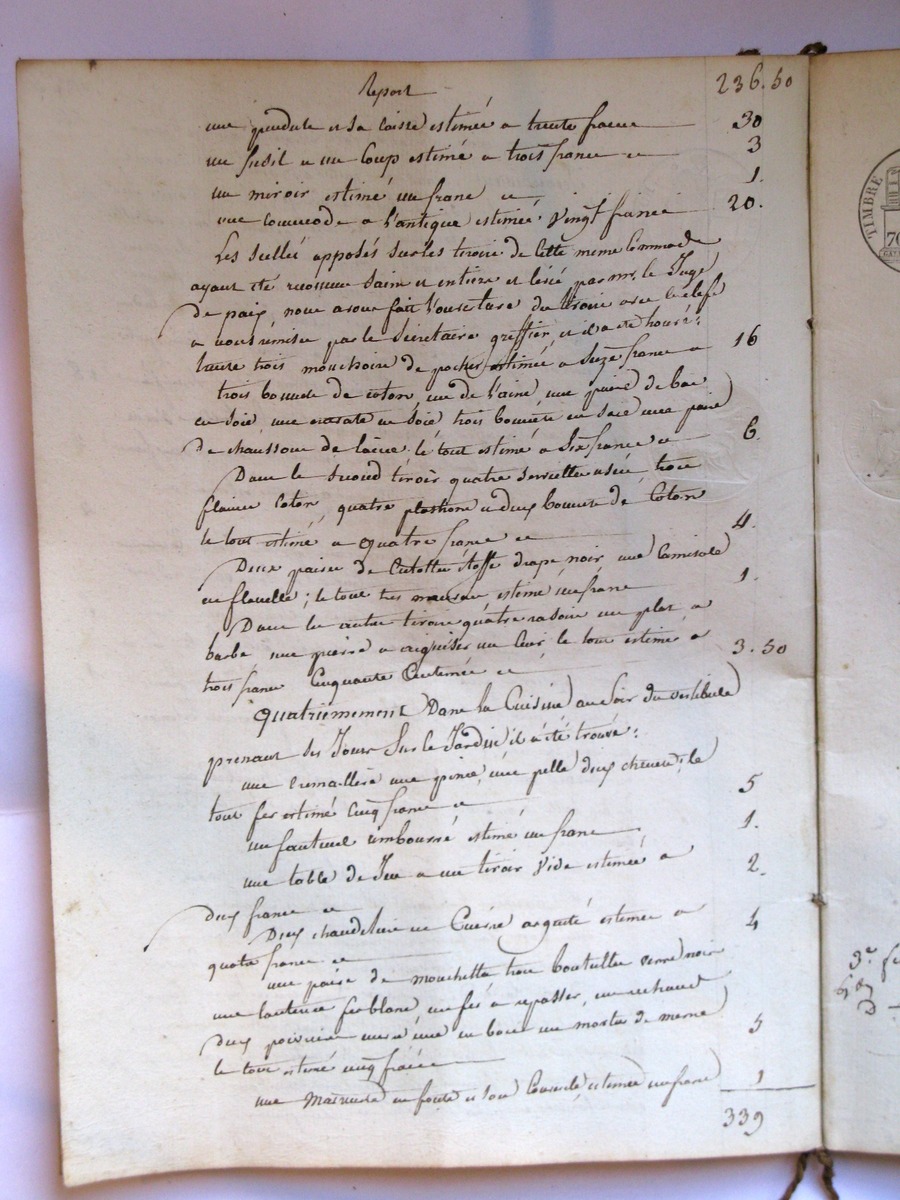 Report 236.50
une pendule et sa caisse estimée a trente francs 30
un fusil a un Coup estimé a trois francs 3
un miroir estimé un franc 1.
une commode a l'antique estimée vingt francs 20.
Les scellés apposés sur les tiroirs de cette meme Commode
ayant été reconnus sains et entiers et levés par mr. le Juge
De paix, nous avons fait l'ouverture du tiroir avec la clef
a nous remise par le Secretaire greffier, et il a été trouvé:
trente trois mouchoirs de poches estimés a Seize francs 16
trois bonnets de coton, un de laine, une paire de bas
en soie, une en soie trois bonnets en soie une paire
De chaussons de laine le tout estimé a Six francs 6.
Dans le second tiroir quatre serviettes usées, trois
coton, quatre plastrons et deux bonnets de Coton
le tout estimé a quatre francs 4.
Deux paires de Culottes étoffe drap noir, une Camisole
en flanelle; le tout très mauvais estimé un franc 1.
Dans le autre tiroir quatre rasoirs un plat a
barbe une pierre a aiguiser un cuir le tout estimé a
trois francs Cinquante Centimes 3.50
Quatriemement Dans la Cuisine au Soir du vestibule
prenant ses Jours Sur le Jardin il a été trouvé:
une cremallière une pince, une pelle deux chenets, le
tout fer estimé Cinq francs 5
un fauteuil embourré estimé un franc 1.
une table de Jeu a un tiroir vide estimée a 2.
Deux francs
Deux chandeliers en Cuivre argenté estimés a 4
quatre francs
une paire de mouchettes trois bouteilles verre noir
une lanterne fer blanc, un fer a repasser, un rechaud
Deux en bois un mortier de meme 5
le tout estimé cinq francs
une Marmite en fonte et son Couvercle, estimée un franc 1
339
TIMBRE
70
3e